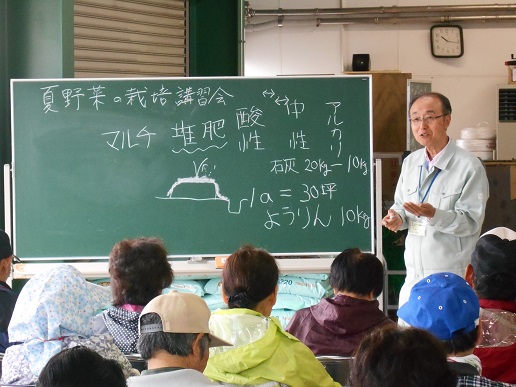 夏野菜の栽培講習会
マルチ 堆肥 酸性 ↔ 中性 ↔ アルカリ
石灰 20kg－10kg
1a = 30坪
ようりん 10kg